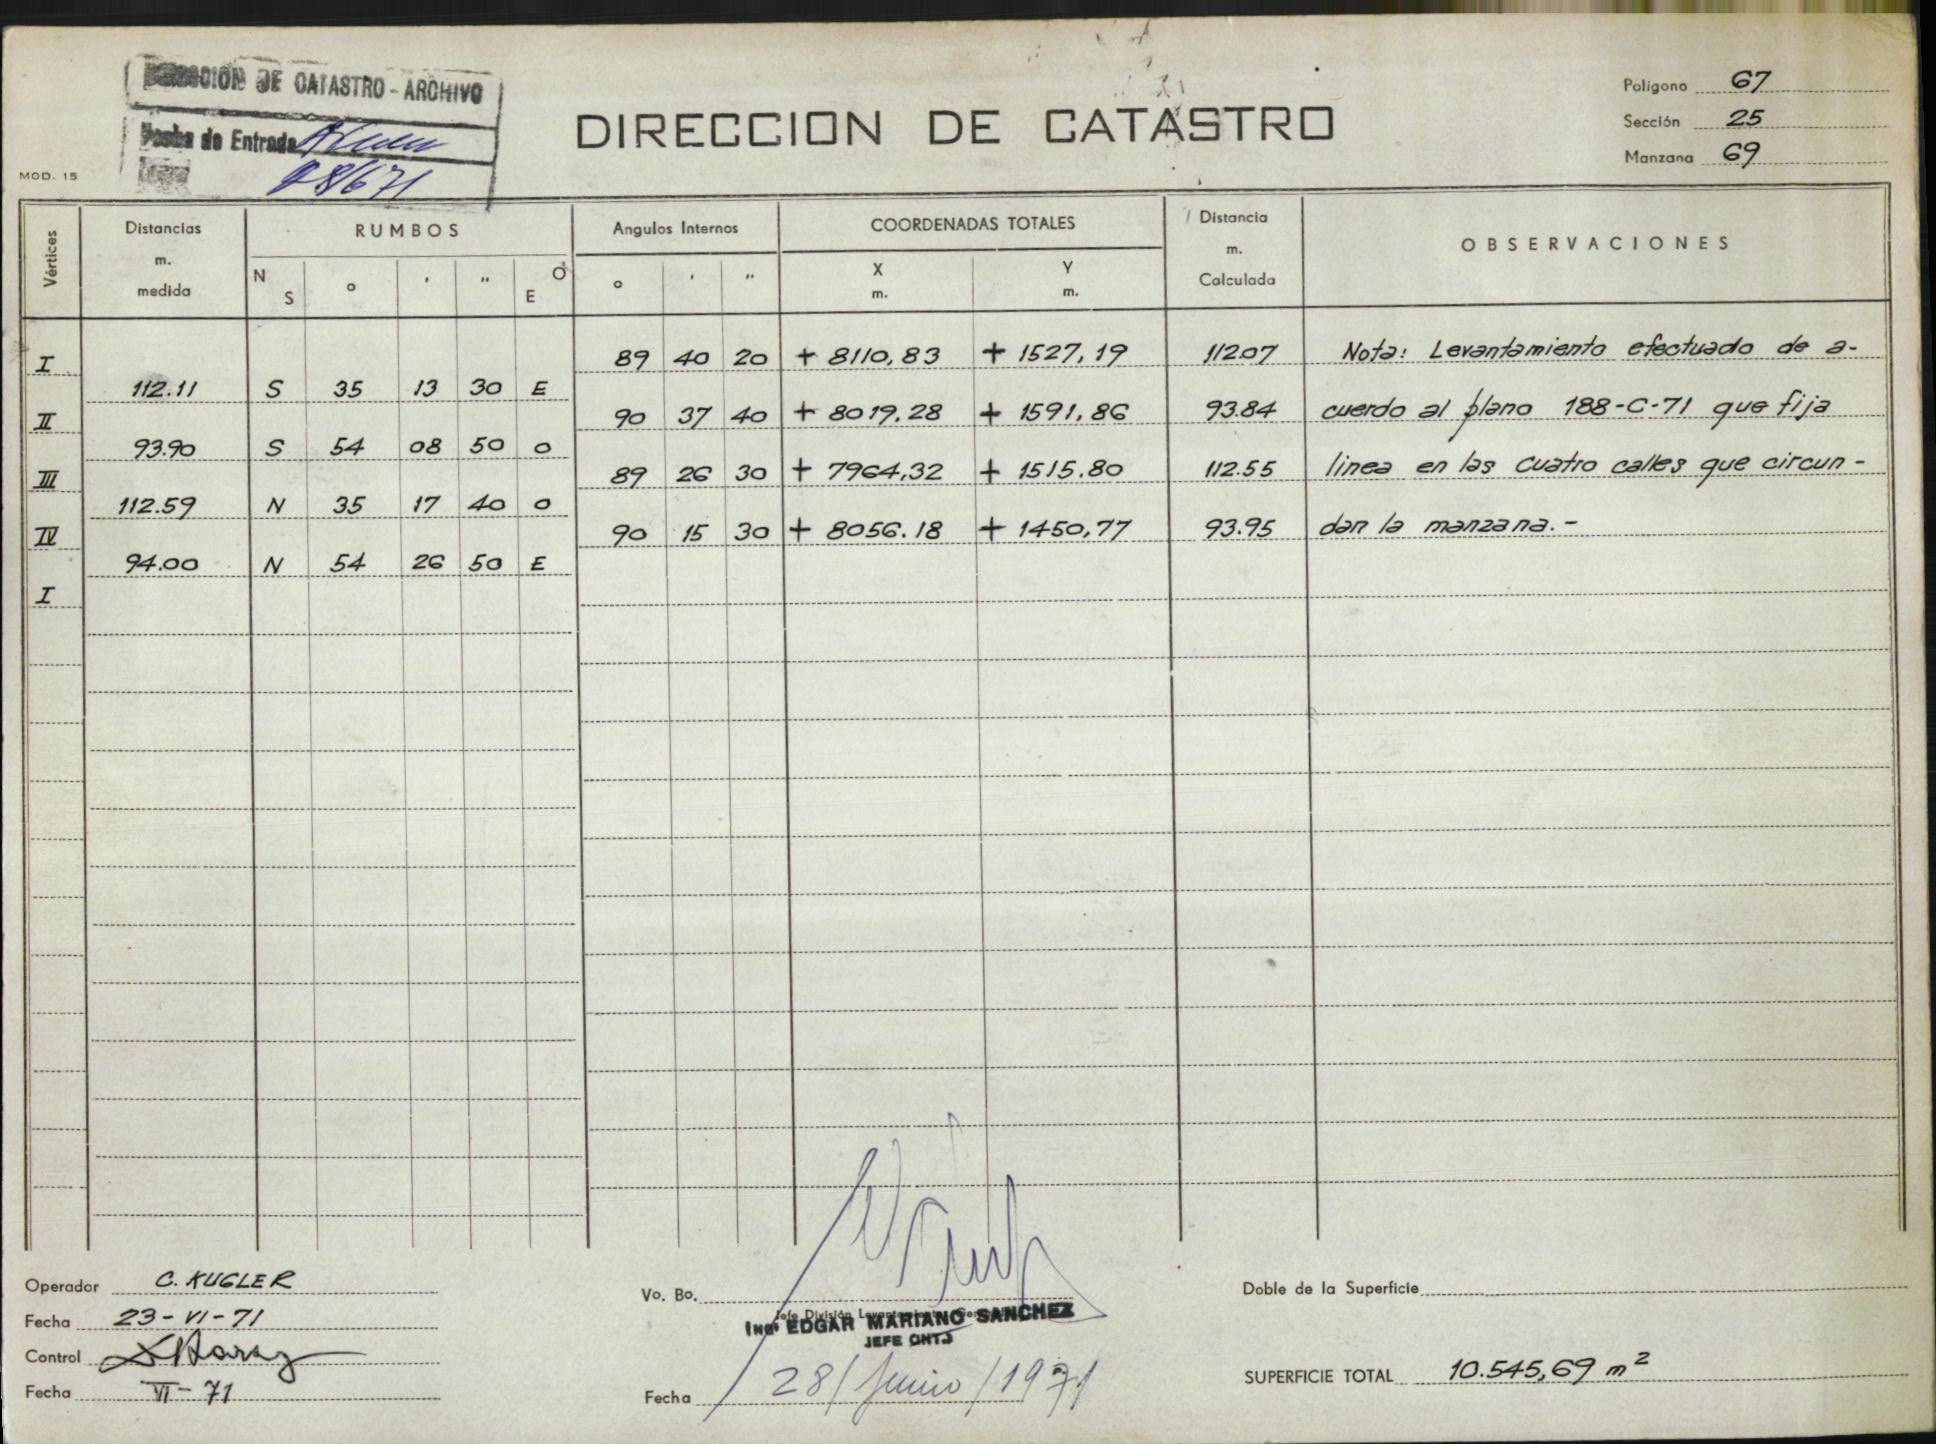 DIRECCION DE CATASTRO - ARCHIVO
Fecha de Entrada
28/6/71
MOD. 15
DIRECCION DE CATASTRO
Polígono 67
Sección 25
Manzana 69
Vértices Distancias m. medida RUMBOS Angulos Internos COORDENADAS TOTALES Distancia m. Calculada OBSERVACIONES
N S o ' " E O o ' " X m. Y m.
I 89 40 20 + 8110,83 + 1527,19 112.07 Nota: Levantamiento efectuado de a-
112.11 S 35 13 30 E
II 90 37 40 + 8019,28 + 1591,86 93.84 cuerdo al plano 188-C-71 que fija
93.90 S 54 08 50 O
III 89 26 30 + 7964,32 + 1515.80 112.55 linea en las cuatro calles que circun-
112.59 N 35 17 40 O
IV 90 15 30 + 8056.18 + 1450,77 93.95 dan la manzana.-
94.00 N 54 26 50 E
I
Operador C. KUGLER
Fecha 23-VI-71
Control
Fecha VI-71
Vo. Bo.
Jefe División Levantamiento
Ing° EDGAR MARIANO SANCHEZ
JEFE
Fecha 28/Junio/1971
Doble de la Superficie
SUPERFICIE TOTAL 10.545,69 m²